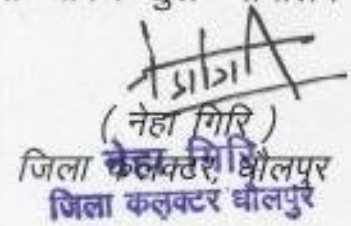 ( नेहा गिरि )
जिला कलक्टर, धौलपुर
नेहा गिरि
जिला कलक्टर धौलपुर